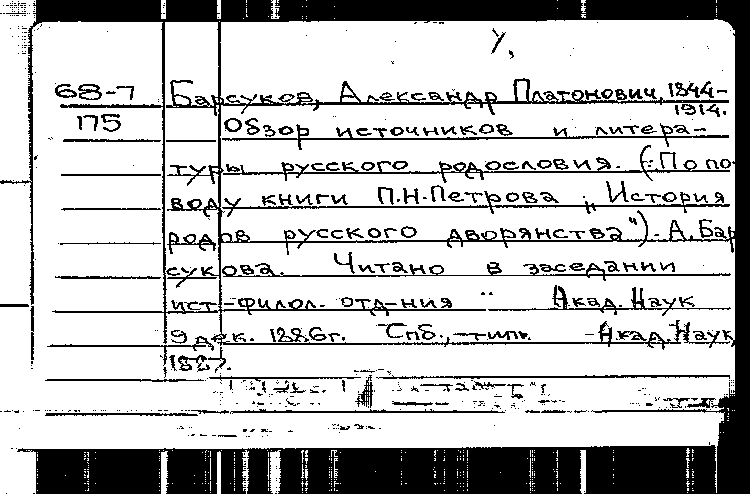 У,
68-7 Барсуков, Александр Платонович, 1844-
1914.
175 Обзор источников и литера-
туры русского родословия. (:По по-
воду книги П.Н.Петрова „История
родов русского дворянства"). А.Бар
сукова. Читано в заседании
ист.-филол. отд-ния Акад. Наук
9 дек. 1886г. Спб., тип. Акад. Наук,
1887.